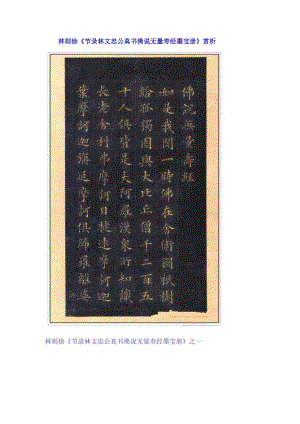 林则徐《节录林文忠公真书佛说无量寿经墨宝册》赏析
佛說無量壽經
如是我聞一時佛在舍衛國祇樹
給孤獨園與大比丘僧千二百五
十人俱皆是大阿羅漢衆所知識
長老舍利弗摩訶目犍連摩訶迦
葉摩訶迦旃延摩訶俱絺羅離婆
林则徐《节录林文忠公真书佛说无量寿经墨宝册》之一